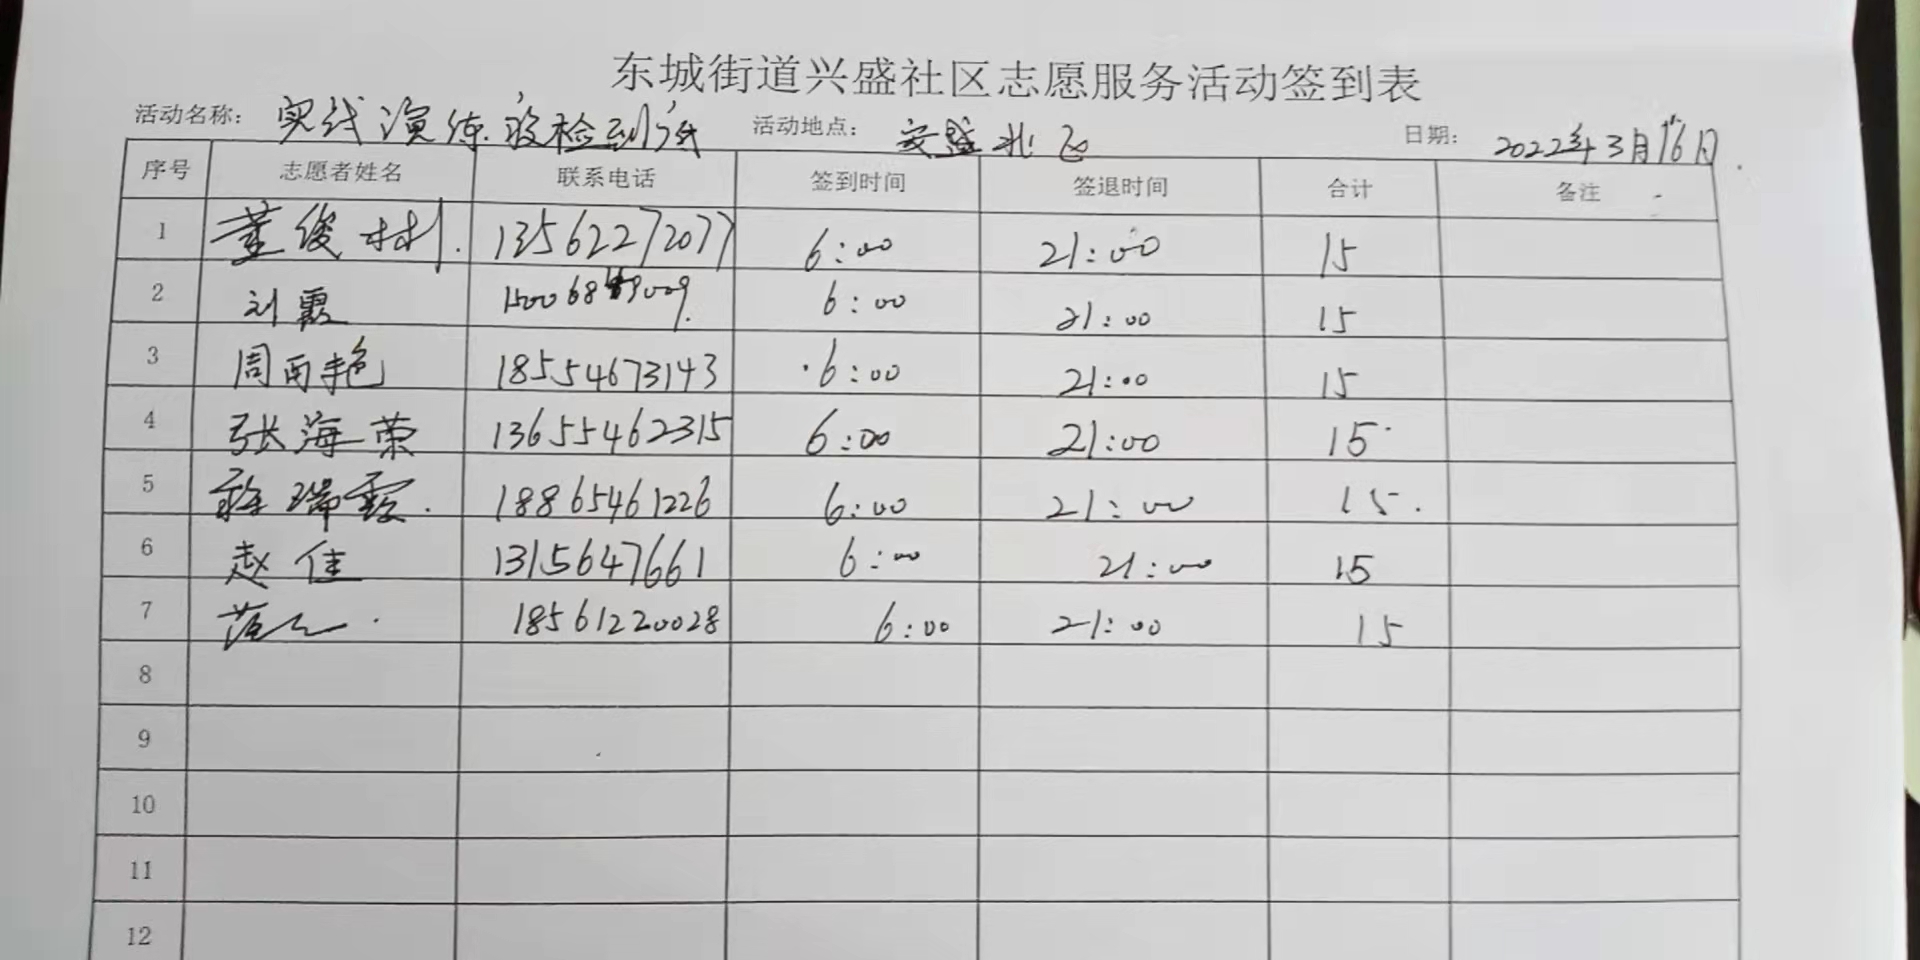 东城街道兴盛社区志愿服务活动签到表
活动名称: 实战演练 核检到
活动地点: 安盛北区
日期: 2022年3月16日
序号 志愿者姓名 联系电话 签到时间 签退时间 合计 备注
1 董俊材 13562272077 6:00 21:00 15
2 刘霞 6:00 21:00 15
3 周雨艳 18554673143 6:00 21:00 15
4 张海荣 13655462315 6:00 21:00 15
5 瑞霞 18865461226 6:00 21:00 15
6 赵佳 1315647661 6:00 21:00 15
7 范 18561220028 6:00 21:00 15
8
9
10
11
12